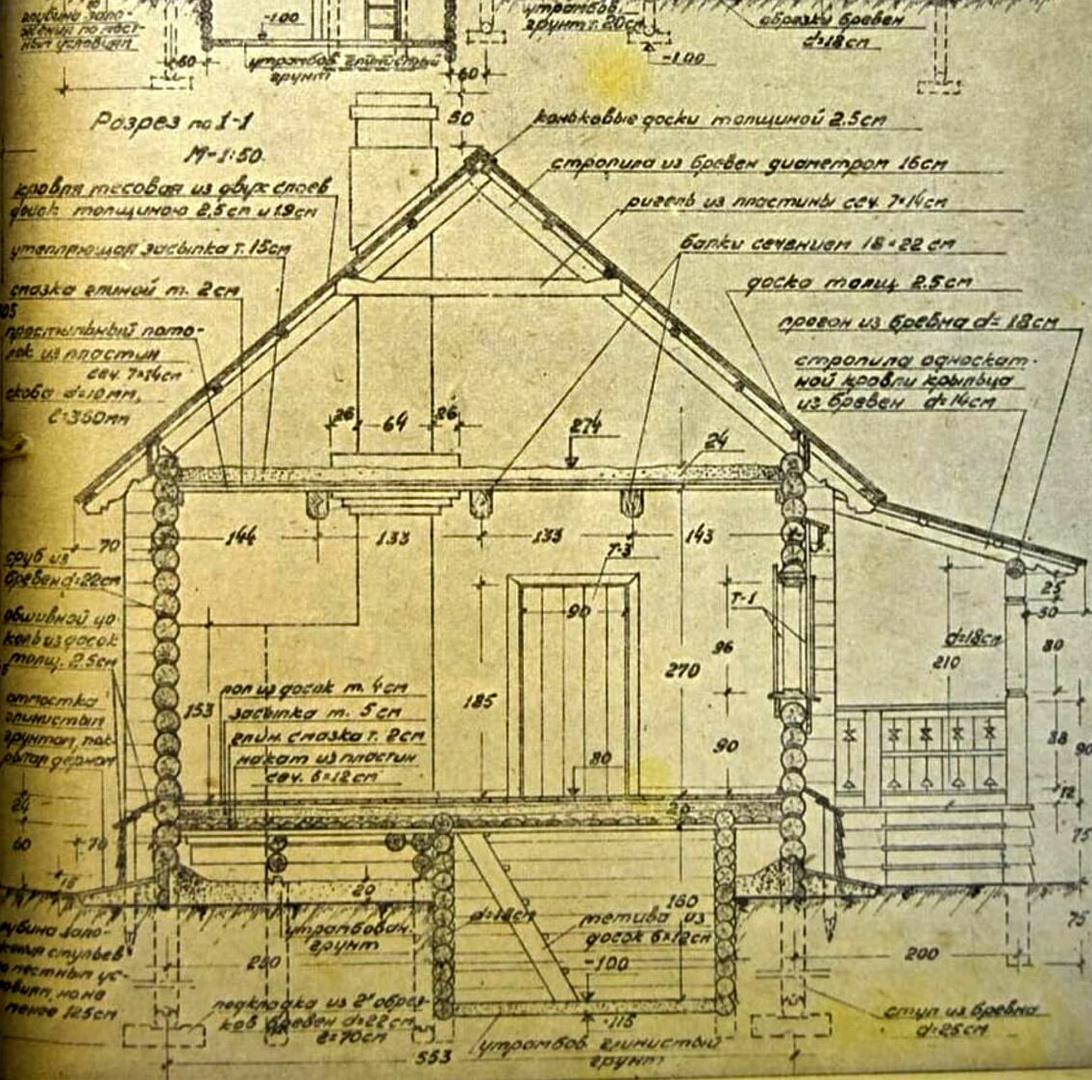 глубина зало-
жения по мест-
ным условиям
-100
60
утрамбов. глинистый
грунт
утрамбов.
грунт т. 20см
60
-100
обрезки бревен
d=18см
Разрез по 1-1
М-1:50.
50
коньковые доски толщиной 2.5см
стропила из бревен диаметром 16см
ригель из пластины сеч. 7×14см
балки сечением 18×22 см
доска толщ. 2.5см
прогон из бревна d=18см
стропила односкат-
ной кровли крыльца
из бревен d=14см
кровля тесовая из двух слоев
досок толщиною 2,5см и 1.9см
утепляющая засыпка т. 15см
смазка глиной т. 2см
простильный пото-
лок из пластин
сеч. 7×14см
скоба d=10мм,
l=360мм
26
64
26
274
24
70
144
133
133
143
сруб из
бревен d=22см
обшивной цо-
коль из досок
толщ. 2.5см
отмостка
глинистым
грунтом, пок-
рытая дерном
Т-3
90
Т-1
96
185
270
153
90
80
25
50
d=18см
210
80
88
90
12
75
пол из досок т. 4см
засыпка т. 5см
глин. смазка т. 2см
накат из пластин
сеч. 6×12см
24
60
70
20
20
утрамбован.
грунт
d=18см
тетива из
досок 6×12см
180
-100
-115
75
200
250
глубина зало-
жения стульев
по местным ус-
ловиям, но не
менее 125см
подкладка из 2х обрез-
ков бревен d=22см
l=70см
утрамбов глинистый
грунт
стул из бревна
d=25см
553